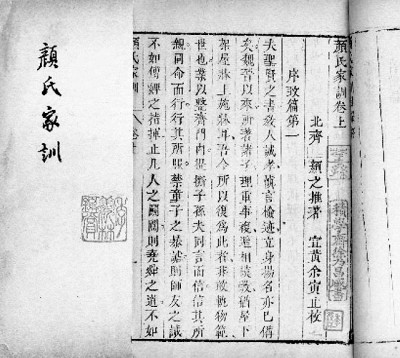 顏氏家訓卷上
北齊 顏之推著 宜黃余寅止校
序致篇第一
夫聖賢之書教人誠孝慎言檢迹立身揚名亦已備
矣魏晉以來所著諸子理重事複遞相模斆猶屋下
架屋牀上施牀耳吾今所以復爲此者非敢軌物範
世也業以整齊門內提撕子孫夫同言而信信其所
親同命而行行其所服禁童子之暴謔則師友之誡
不如傅婢之指揮止凡人之鬭鬩則堯舜之道不如
顏氏家訓 卷上
積學齋徐乃昌藏書
顏氏家訓